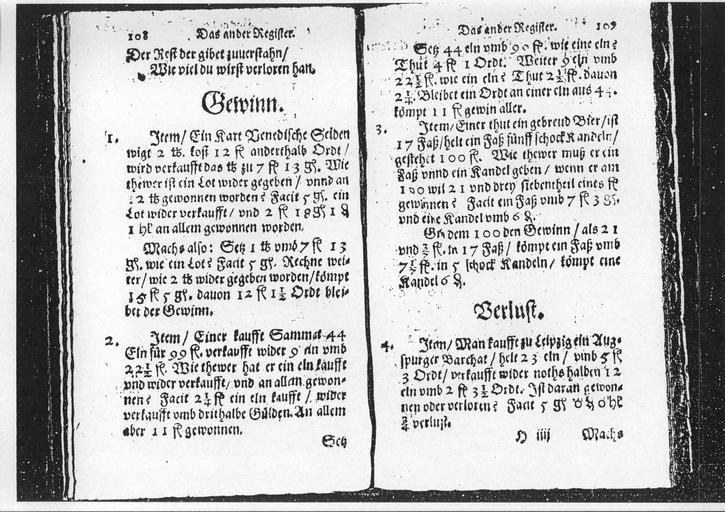 108 Das ander Register.
Der Rest der gibet zuuerstahn/
Wie viel du wirst verloren han.
Gewinn.
1. Item/ Ein Kart Venedische Seiden
wigt 2 ℔. kost 12 fl anderthalb Ordt/
wird verkaufft das ℔ zu 7 fl 13 gl. Wie
thewer ist ein Lot wider gegeben/ vnnd an
12 ℔ gewonnen worden? Facit 5 gl. ein
Lot wider verkaufft/ vnd 2 fl 18 gl 1 ₰
1 hl an allem gewonnen worden.
Machs also: Setz 1 ℔ vmb 7 fl 13
gl. wie ein Lot? Facit 5 gl. Rechne wei-
ter/ wie 2 ℔ wider gegeben worden/ kömpt
15 fl 5 gl. dauon 12 fl 1½ Ordt blei-
bet der Gewinn.
2. Item/ Einer kaufft Sammat 44
Eln für 99 fl. verkaufft wider 9 eln vmb
22½ fl. Wie thewer hat er ein eln kaufft
vnd wider verkaufft/ vnd an allem gewon-
nen? Facit 2¼ fl ein eln kaufft/ wider
verkaufft vmb drithalbe Gülden. An allem
aber 11 fl gewonnen.
Setz
Das ander Register. 109
Setz 44 eln vmb 90 fl. wie eine eln?
Thut 4 fl 1 Ordt. Weiter 9 eln vmb
22½ fl. wie ein eln? Thut 2½ fl. dauon
2¼. Bleibet ein Ordt an einer eln aus 44.
kömpt 11 fl gewin aller.
3. Item/ Einer thut ein gebreud Bier/ ist
17 Faß/ helt ein Faß fünff schock Kandeln/
gestehet 100 fl. Wie thewer muß er ein
Faß vnnd ein Kandel geben/ wenn er am
100 wil 21 vnd drey siebentheil eines fl
gewinnen? Facit ein Faß vmb 7 fl 3 gl.
vnd eine Kandel vmb 6 ₰.
Gib dem 100 den Gewinn/ als 21
vnd 3/7 fl. in 17 Faß/ kömpt ein Faß vmb
7 1/7 fl. in 5 schock Kandeln/ kömpt eine
Kandel 6 ₰.
Verlust.
4. Item/ Man kaufft zu Leipzig ein Aug-
spurger Barchat/ helt 23 eln/ vmb 5 fl
3 Ordt/ verkaufft wider noths halben 12
eln vmb 2 fl 3½ Ordt. Ist daran gewon-
nen oder verloren? Facit 5 gl 8 ₰ 0 hl
¾ verlust.
H iiij Machs